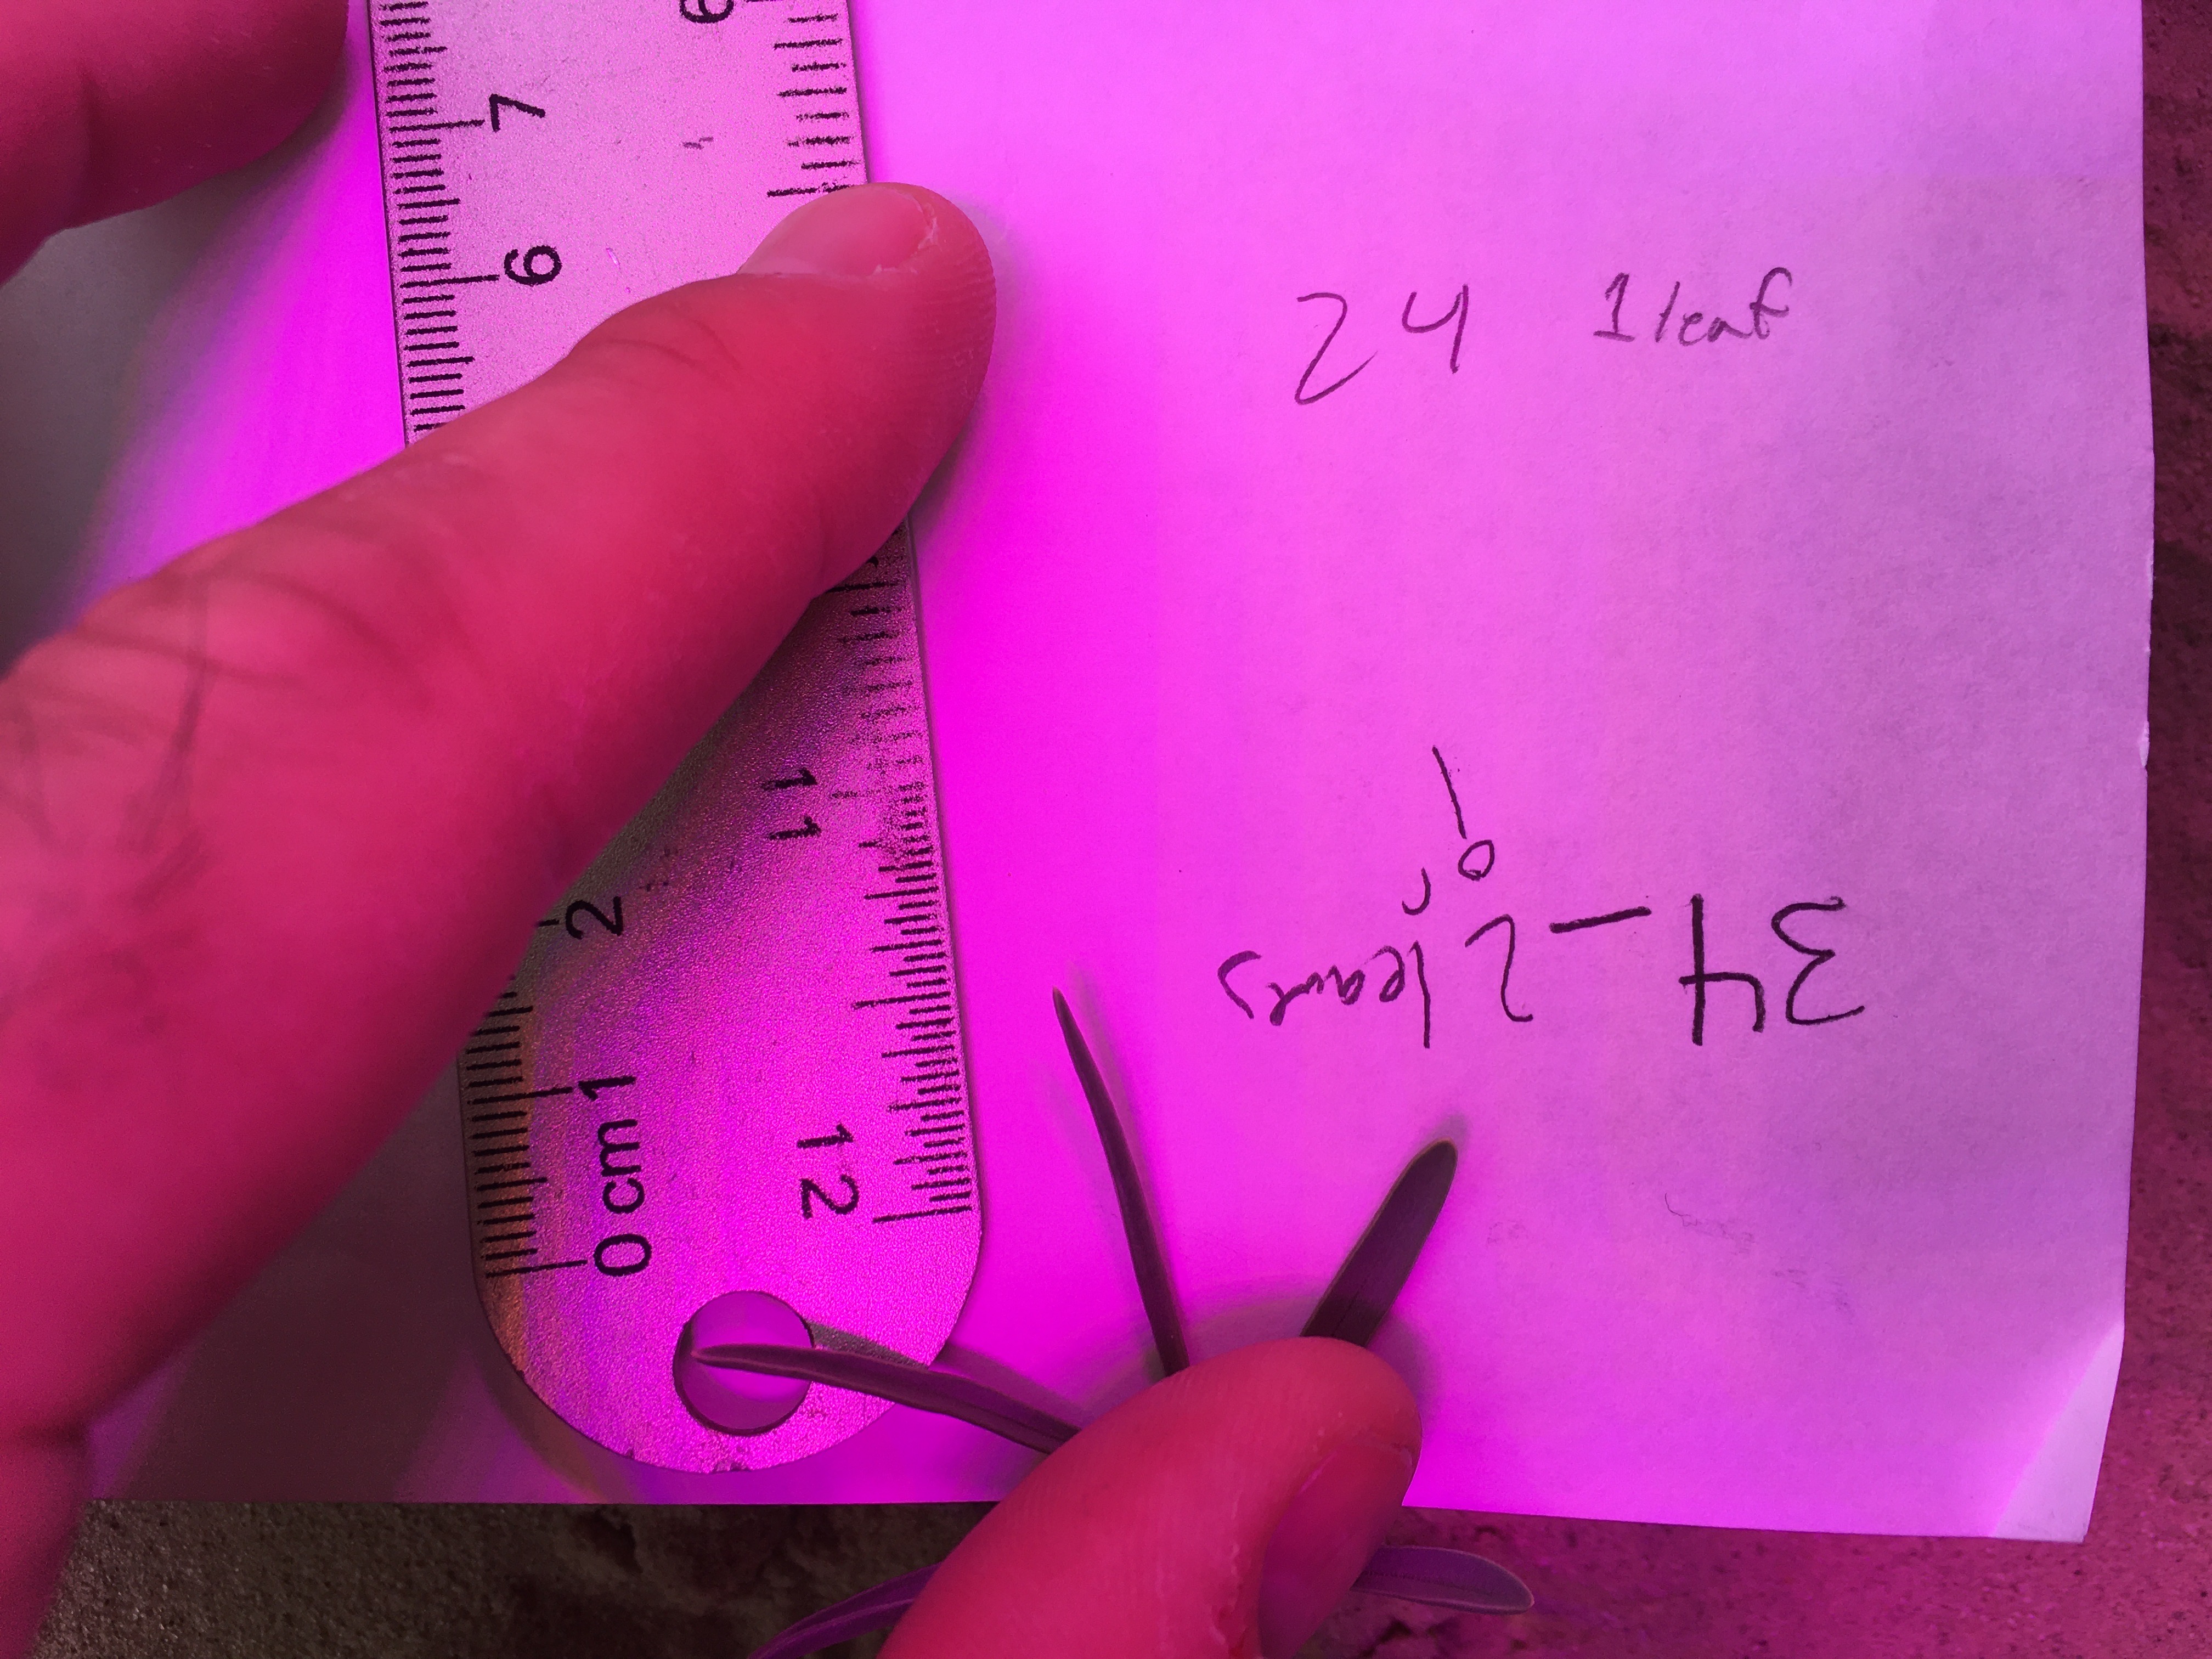 0 cm 1 2 6 7
12 11 6
34 - 2 leaves
24 1 leaf